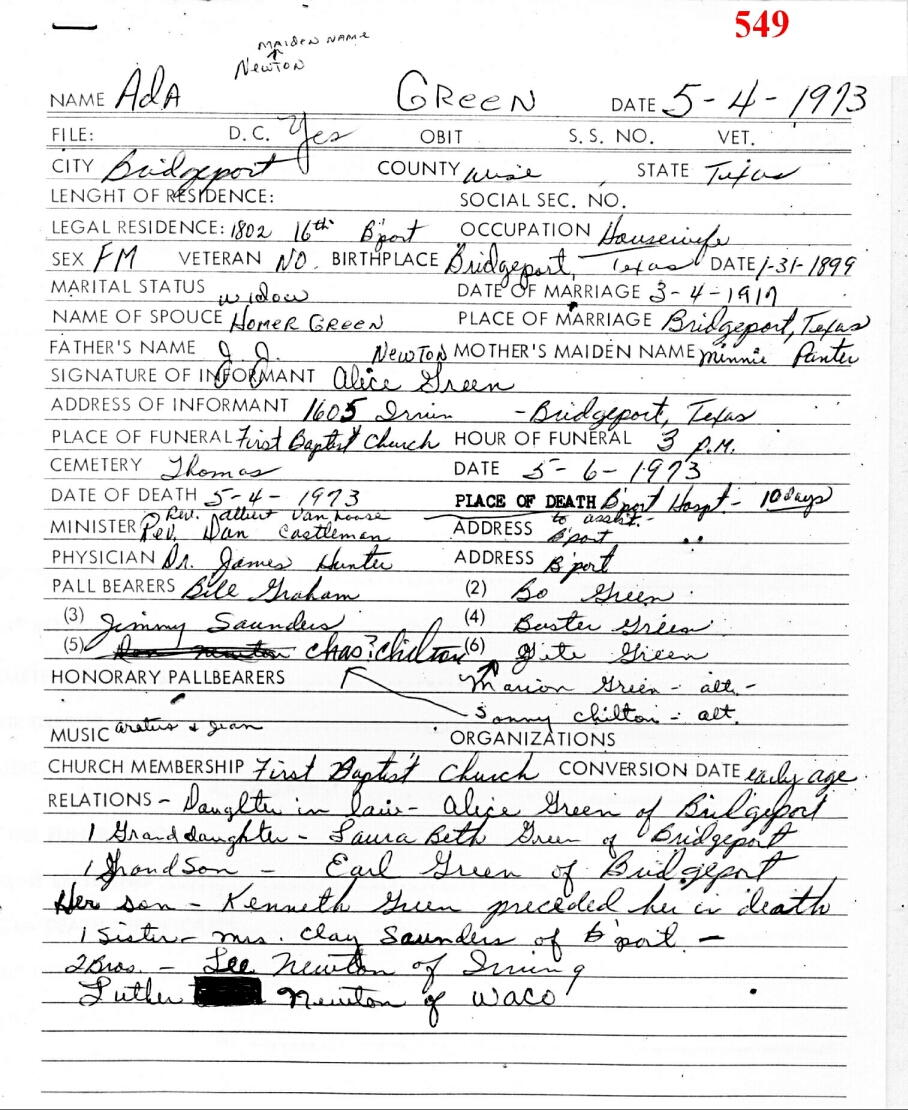 549
MAIDEN NAME
NEWTON
NAME AdA GREEN DATE 5-4-1973
FILE: D.C. Yes OBIT S.S. NO. VET.
CITY Bridgeport COUNTY Wise STATE Texas
LENGHT OF RESIDENCE: SOCIAL SEC. NO.
LEGAL RESIDENCE: 1802 16th B'port OCCUPATION Housewife
SEX FM VETERAN NO. BIRTHPLACE Bridgeport, Texas DATE 1-31-1899
MARITAL STATUS widow DATE OF MARRIAGE 3-4-1917
NAME OF SPOUCE HOMER GREEN PLACE OF MARRIAGE Bridgeport, Texas
FATHER'S NAME J. J. NEWTON MOTHER'S MAIDEN NAME Minnie Panter
SIGNATURE OF INFORMANT Alice Green
ADDRESS OF INFORMANT 1605 Irvin - Bridgeport, Texas
PLACE OF FUNERAL First Baptist Church HOUR OF FUNERAL 3 P.M.
CEMETERY Thomas DATE 5-6-1973
DATE OF DEATH 5-4-1973 PLACE OF DEATH B'port Hospt- 10 days
Rev. albert Van Loose to assist.-
MINISTER Rev. Dan Castleman ADDRESS B'port
PHYSICIAN Dr. James Hunter ADDRESS B'port
PALL BEARERS Bill Graham (2) Bo Green
(3) Jimmy Saunders (4) Buster Green
(5) Don Newton Chas? Chilton (6) Gete Green
HONORARY PALLBEARERS Marion Green - alt.-
Sonny Chilton - alt.
MUSIC aretus & Jean ORGANIZATIONS
CHURCH MEMBERSHIP First Baptist Church CONVERSION DATE early age
RELATIONS - Daughter in law - Alice Green of Bridgeport
1 Granddaughter - Laura Beth Green of Bridgeport
1 GrandSon - Earl Green of Bridgeport
Her son - Kenneth Green preceded her in death
1 Sister - mrs. Clay Saunders of B'port -
2 Bros. - Lee Newton of Irving
Luther Newton of Waco